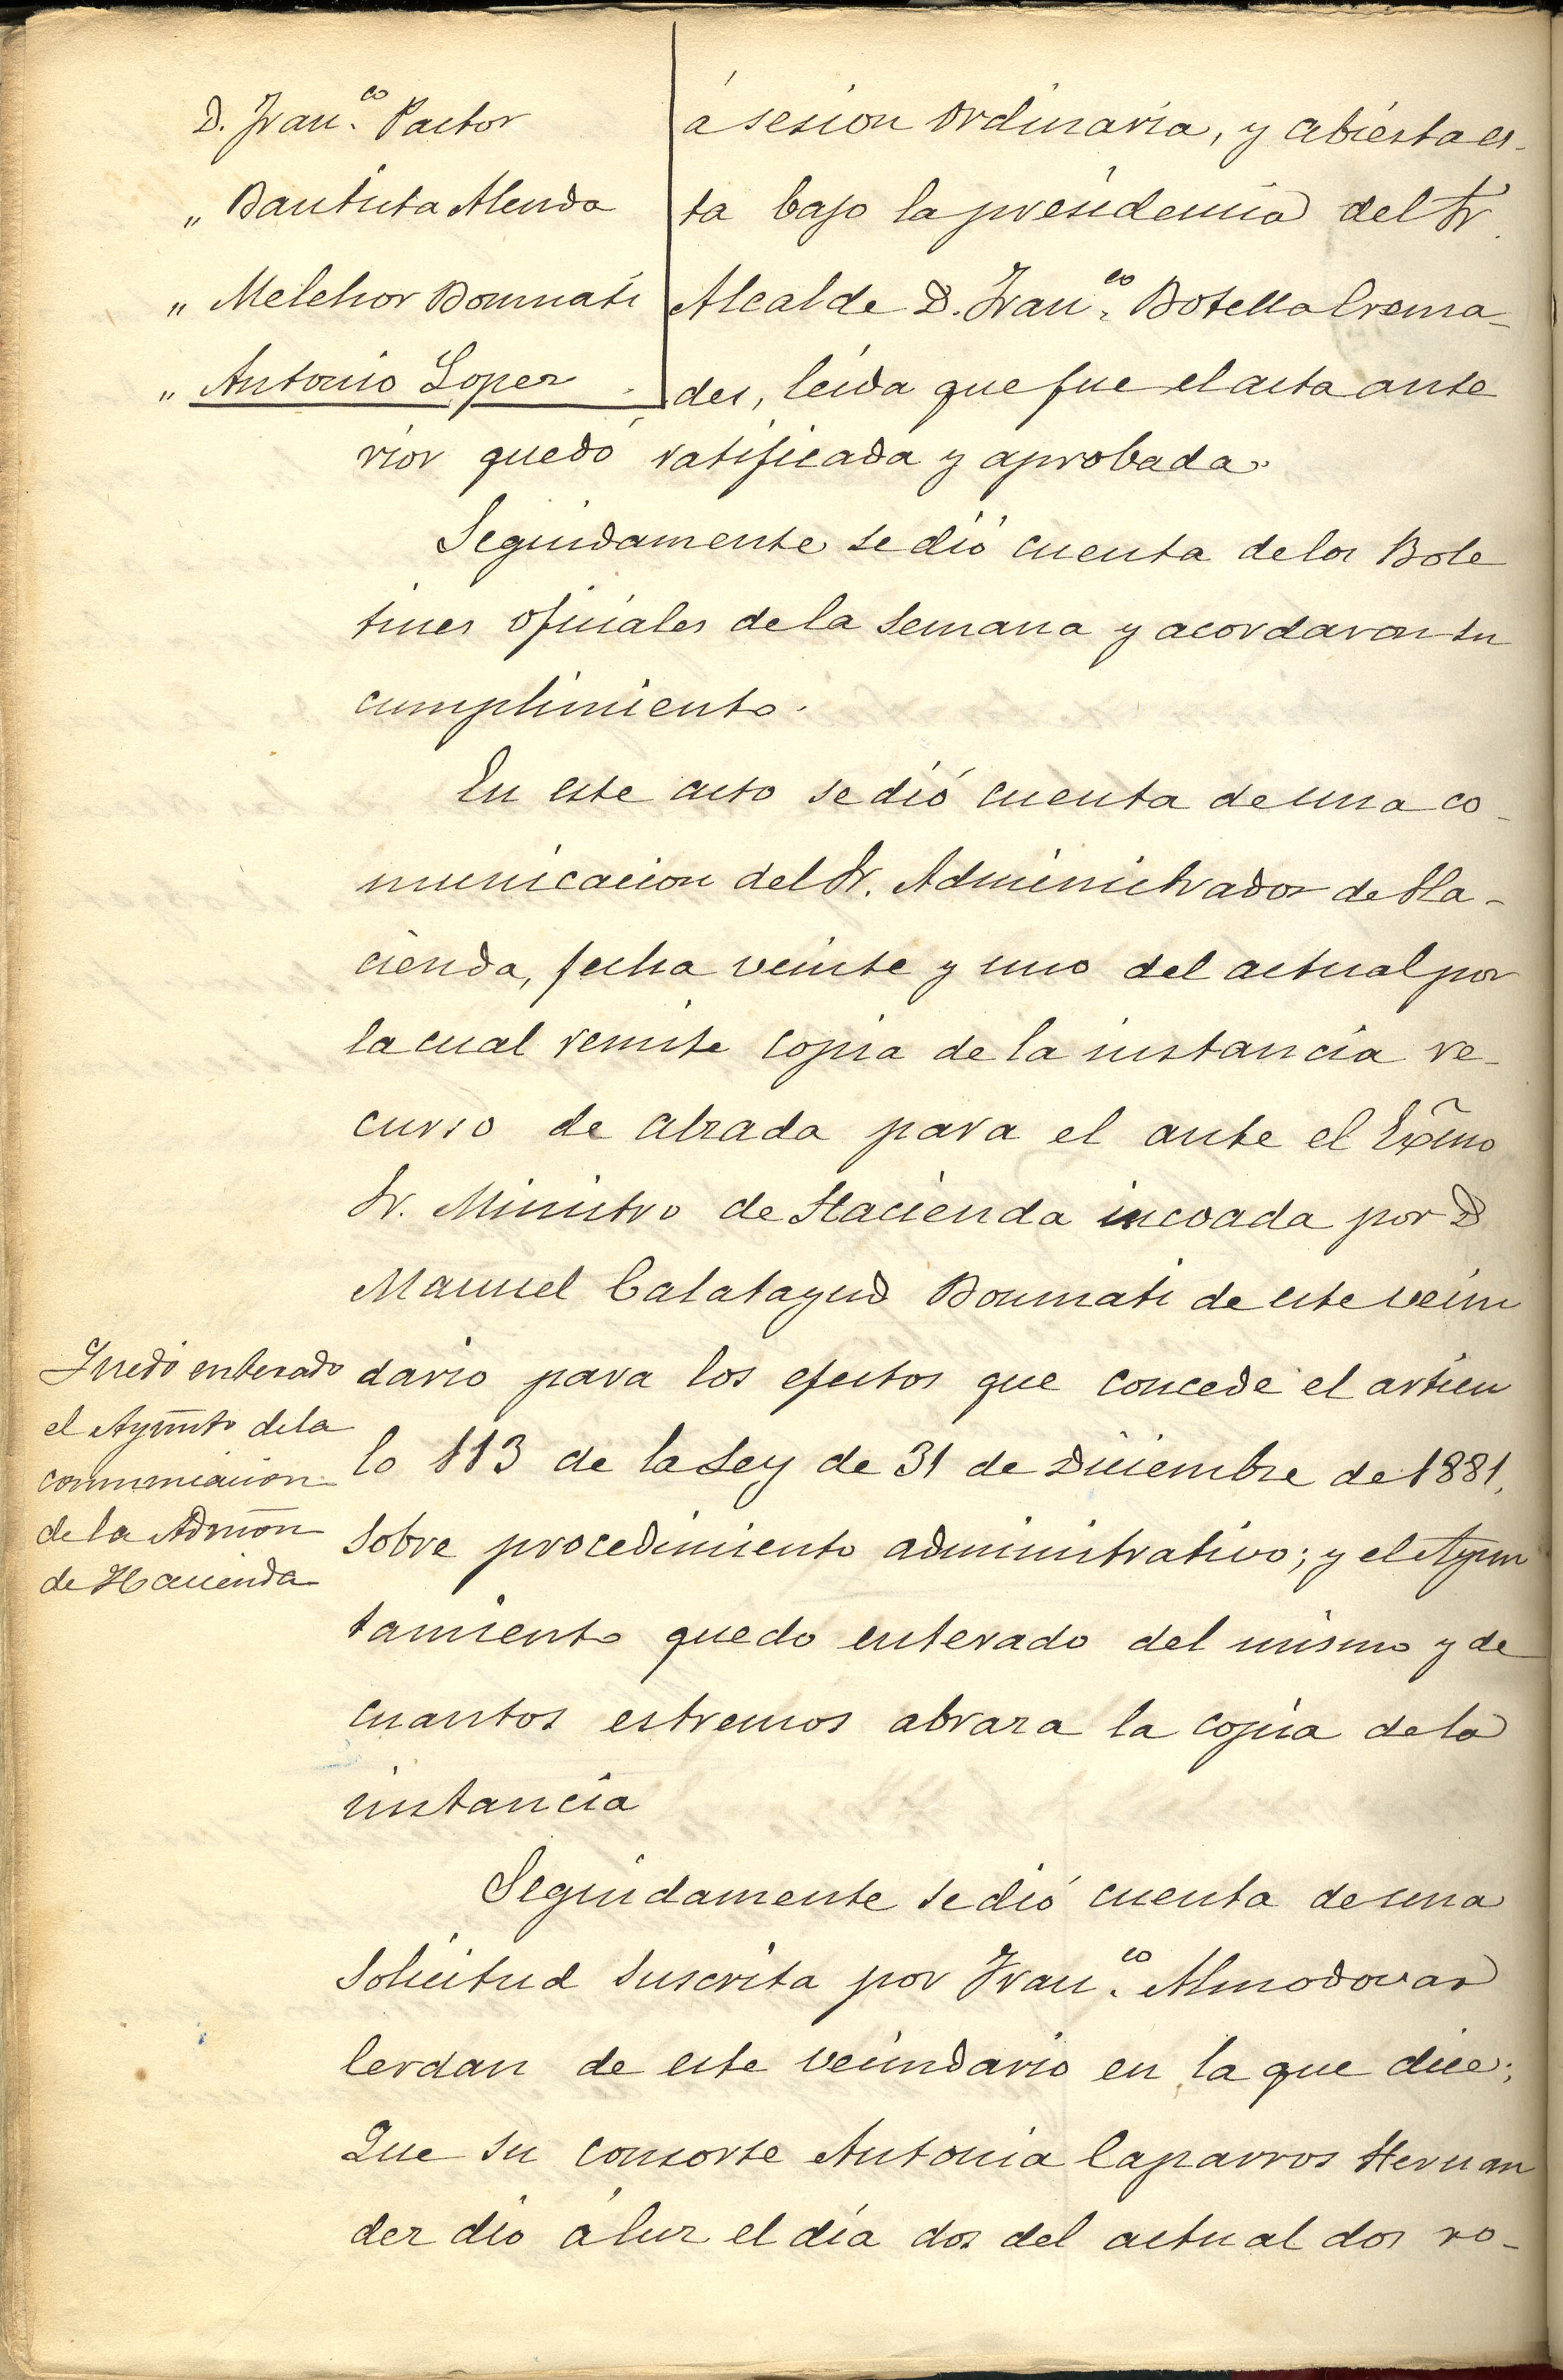 D. Fran.co Pastor
„ Bautista Alenda
„ Melchor Bonmati
„ Antonio Lopez
á sesion ordinaria, y abierta es-
ta bajo la presidencia del Sr.
Alcalde D. Fran.co Botella Crema-
des, leida que fue el acta ante
rior quedó ratificada y aprobada.
Seguidamente se dió cuenta de los Bole
tines oficiales de la semana y acordaron su
cumplimiento.
En este acto se dió cuenta de una co-
municacion del Sr. Administrador de Ha-
cienda, fecha veinte y uno del actual por
la cual remite copia de la instancia re-
curso de alzada para el ante el Exc̃mo
Sr. Ministro de Hacienda incoada por D
Manuel Calatayud Bonmati de este vecin
dario para los efectos que concede el articu
lo 113 de la Ley de 31 de Diciembre de 1881,
sobre procedimiento administrativo; y el Ayun
tamiento quedo enterado del mismo y de
cuantos estremos abraza la copia de la
instancia
Quedó enterado
el Ayum̃to de la
comunicacion
de la Admõn
de Hacienda
Seguidamente se dió cuenta de una
solicitud suscrita por Fran.co Almodovar
Cerdan de este vecindario en la que dice;
Que su consorte Antonia Caparros Hernan
dez dio á luz el día dos del actual dos ro-